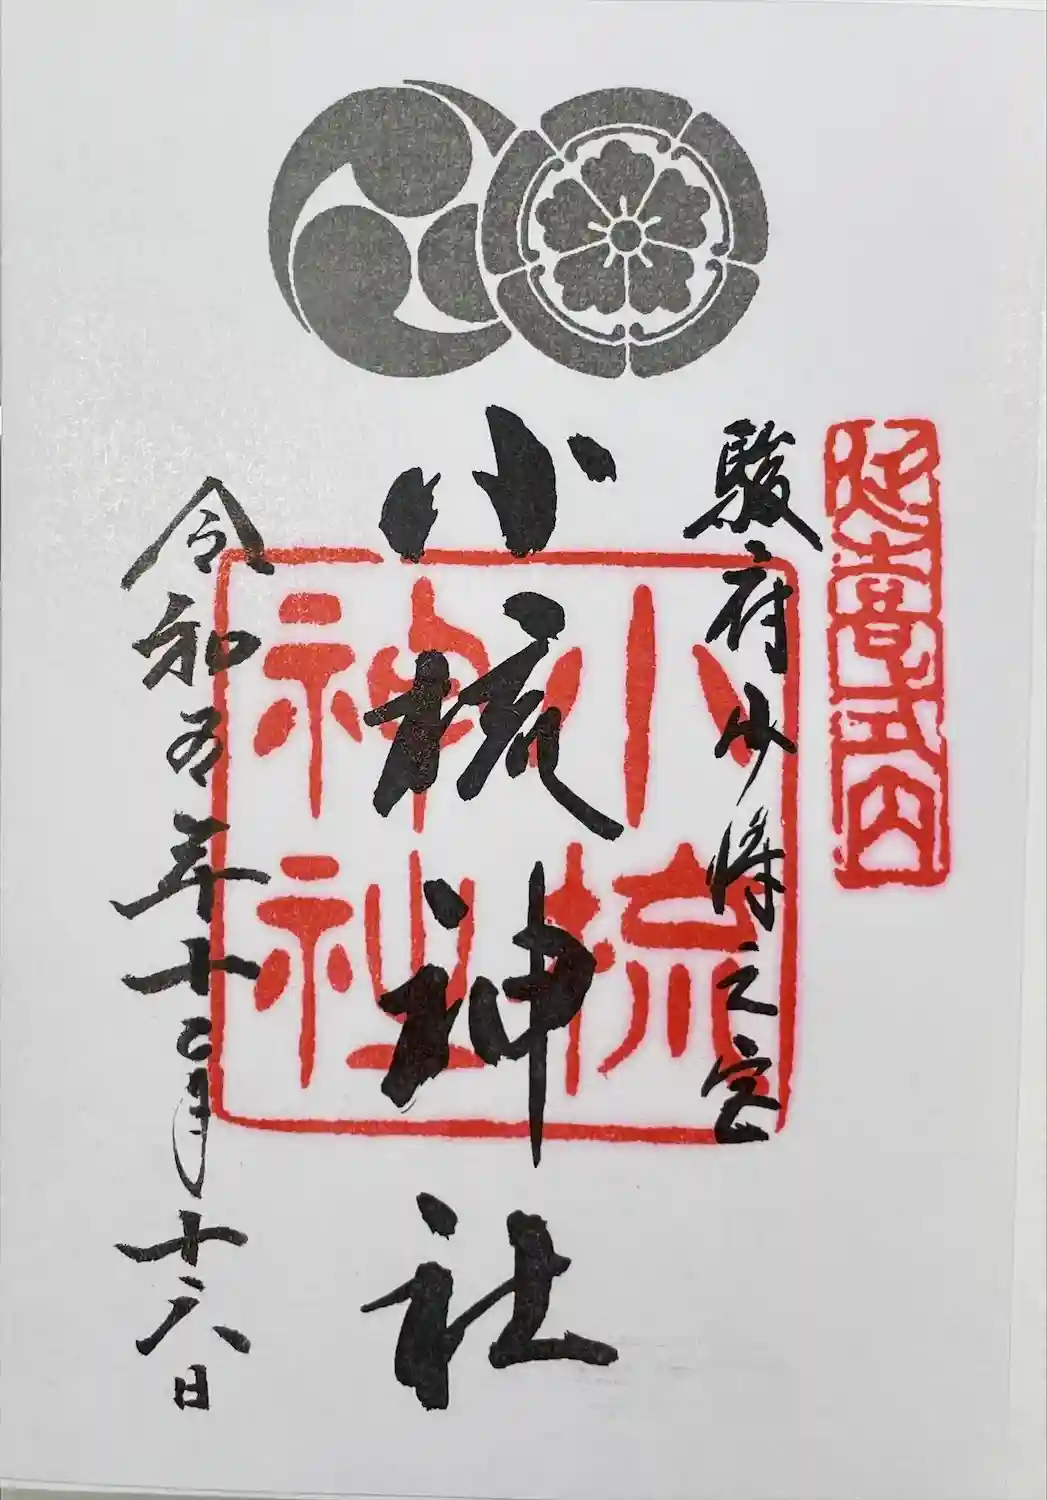 延喜式内
駿府少将之宮
小梳神社
小梳
神社
令和五年十二月十六日